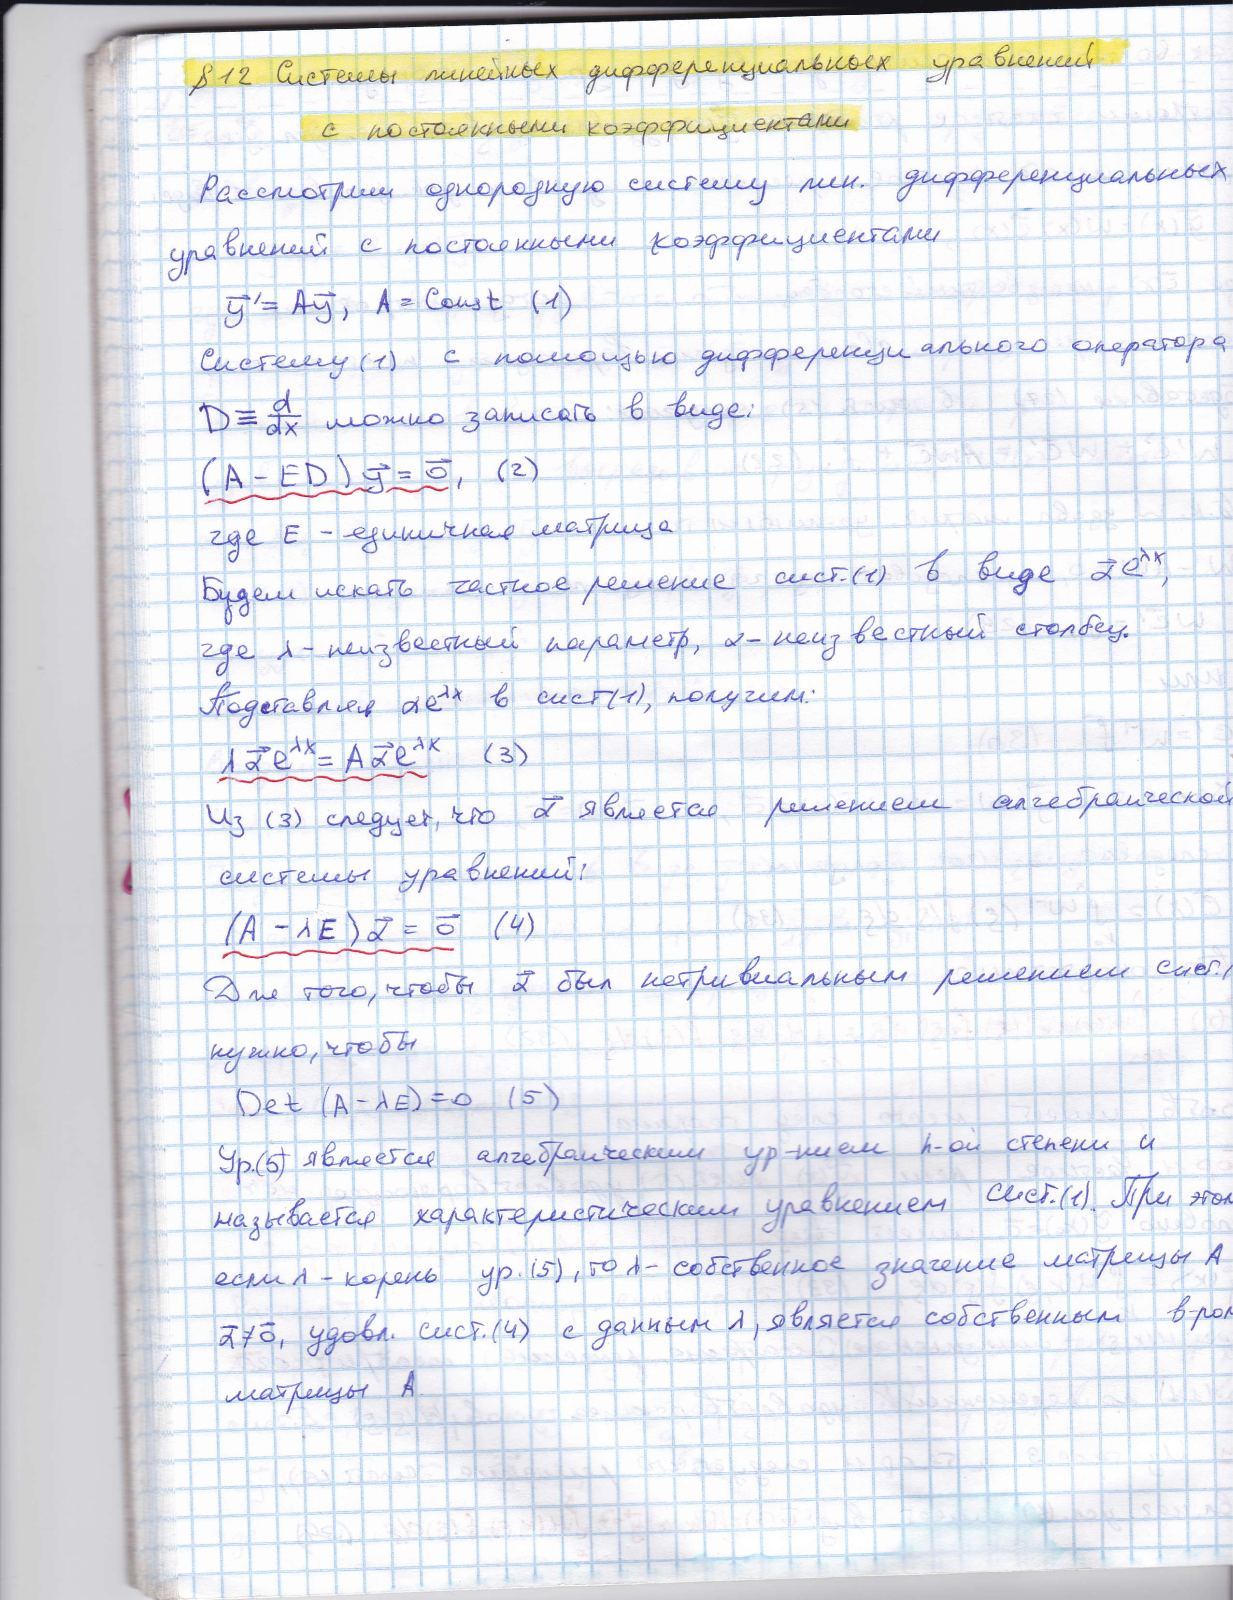 §12 Системы линейных дифференциальных уравнений
с постоянными коэффициентами
Рассмотрим однородную систему лин. дифференциальных
уравнений с постоянными коэффициентами
y⃗' = Ay⃗, A = Const (1)
Систему (1) с помощью дифференциального оператора
D ≡ d/dx можно записать в виде:
(A - ED) y⃗ = 0⃗, (2)
где E - единичная матрица
Будем искать частное решение сист.(1) в виде α⃗e^λx,
где λ - неизвестный параметр, α - неизвестный столбец.
Подставляя αe^λx в сист(1), получим:
λα⃗e^λx = Aα⃗e^λx (3)
Из (3) следует, что α⃗ является решением алгебраической
системы уравнений:
(A - λE)α⃗ = 0⃗ (4)
Для того, чтобы α⃗ был нетривиальным решением сист.
нужно, чтобы
Det (A - λE) = 0 (5)
Ур.(5) является алгебраическим ур-нием n-ой степени и
называется характеристическим уравнением сист.(1). При этом
если λ - корень ур.(5), то λ - собственное значение матрицы A
α⃗≠0⃗, удовл. сист.(4) с данным λ, является собственным в-ром
матрицы A